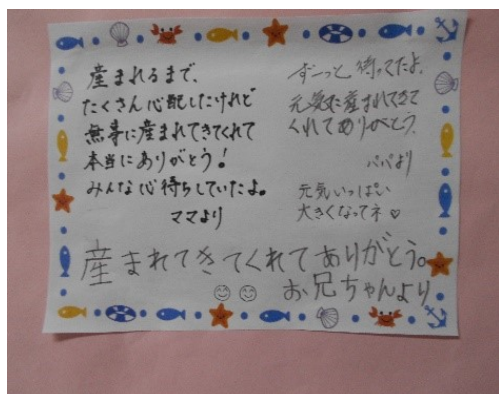 産まれるまで、
たくさん心配したけれど
無事に産まれてきてくれて
本当にありがとう!
みんな心待ちしていたよ。
ママより
ずーっと、待ってたよ。
元気に産まれてきて
くれてありがとう。
パパより
元気いっぱい
大きくなってネ♡
産まれてきてくれてありがとう。
お兄ちゃんより